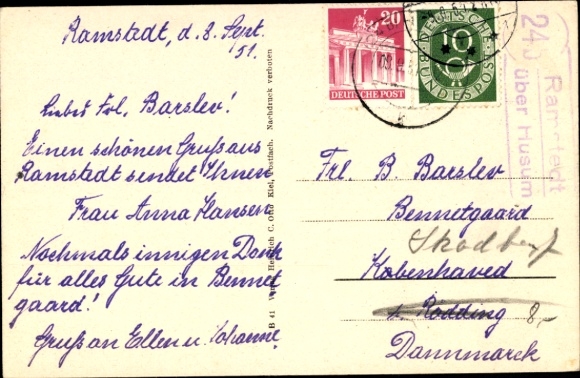 Ramstedt, d. 8. Sept.
51.
Liebes Frl. Barslev!
Einen schönen Gruß aus
Ramstadt sendet Ihnen
Frau Anna Hansen
Nochmals innigen Dank
für alles Gute in Bennet
gaard!
Gruß an Ellen u.
B 41 Verlag Heinrich C. Otto Kiel, Postfach. Nachdruck verboten
20
DEUTSCHE POST
DEUTSCHE
10
BUNDESPOST
24b
Ramstedt
über Husum
Frl. B. Barslev
Bennetgaard
Skodborg
Københaved
pr. Rödding 8,-
Dannmarck